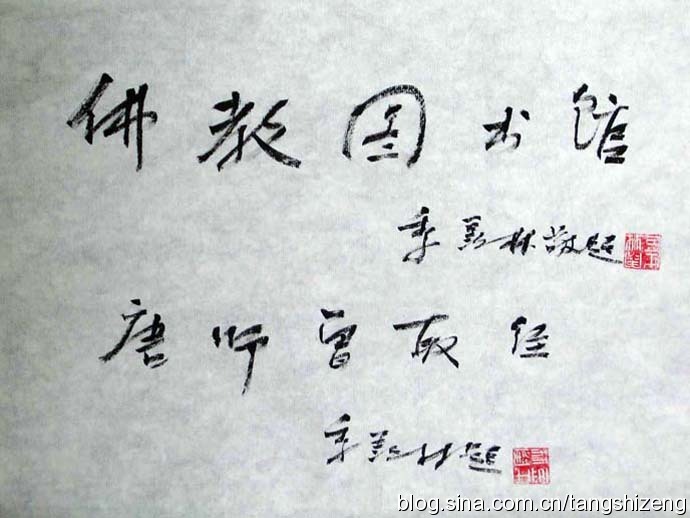 佛教图书馆
季羡林敬题
唐师曾取经
季羡林题
blog.sina.com.cn/tangshizeng